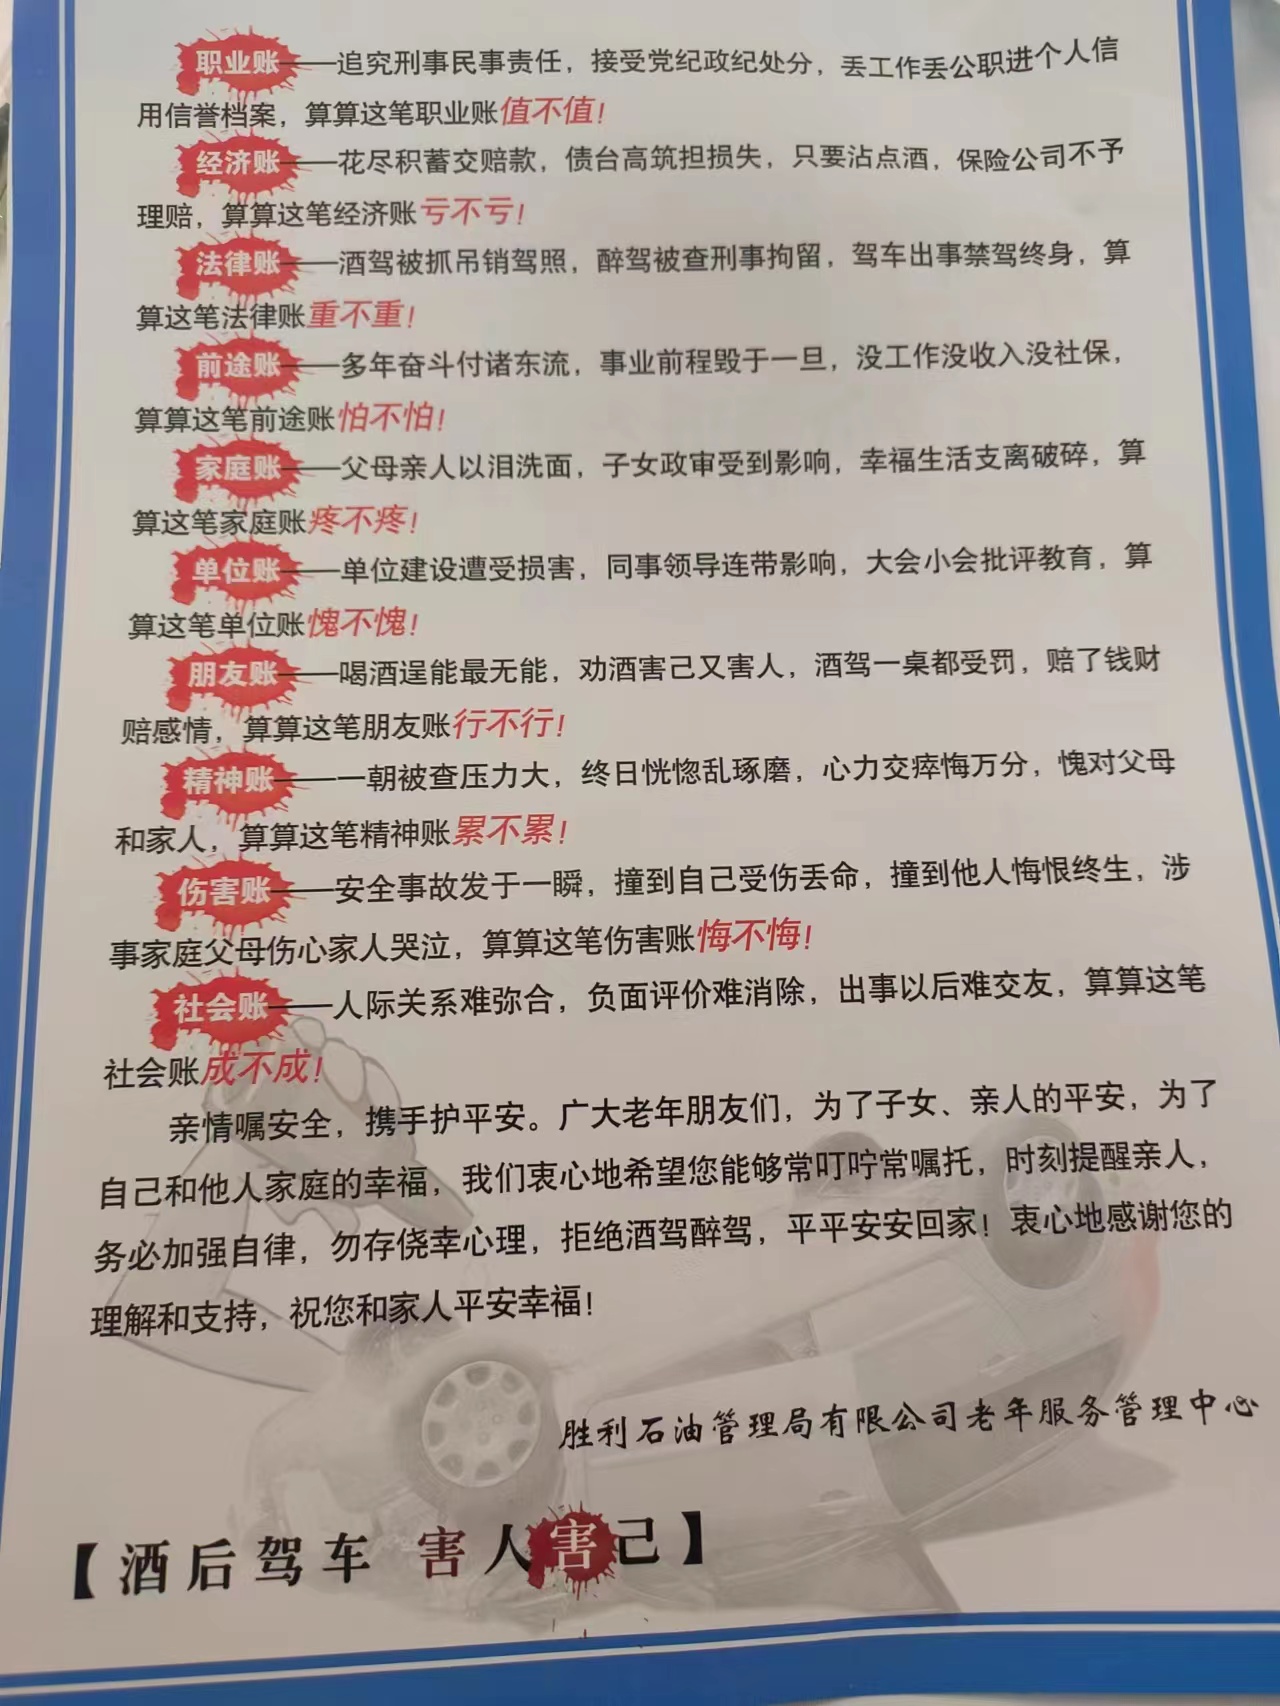 职业账——追究刑事民事责任，接受党纪政纪处分，丢工作丢公职进个人信
用信誉档案，算算这笔职业账值不值！
经济账——花尽积蓄交赔款，债台高筑担损失，只要沾点酒，保险公司不予
理赔，算算这笔经济账亏不亏！
法律账——酒驾被抓吊销驾照，醉驾被查刑事拘留，驾车出事禁驾终身，算
算这笔法律账重不重！
前途账——多年奋斗付诸东流，事业前程毁于一旦，没工作没收入没社保，
算算这笔前途账怕不怕！
家庭账——父母亲人以泪洗面，子女政审受到影响，幸福生活支离破碎，算
算这笔家庭账疼不疼！
单位账——单位建设遭受损害，同事领导连带影响，大会小会批评教育，算
算这笔单位账愧不愧！
朋友账——喝酒逞能最无能，劝酒害己又害人，酒驾一桌都受罚，赔了钱财
赔感情，算算这笔朋友账行不行！
精神账——一朝被查压力大，终日恍惚乱琢磨，心力交瘁悔万分，愧对父母
和家人，算算这笔精神账累不累！
伤害账——安全事故发于一瞬，撞到自己受伤丢命，撞到他人悔恨终生，涉
事家庭父母伤心家人哭泣，算算这笔伤害账悔不悔！
社会账——人际关系难弥合，负面评价难消除，出事以后难交友，算算这笔
社会账成不成！
亲情嘱安全，携手护平安。广大老年朋友们，为了子女、亲人的平安，为了
自己和他人家庭的幸福，我们衷心地希望您能够常叮咛常嘱托，时刻提醒亲人，
务必加强自律，勿存侥幸心理，拒绝酒驾醉驾，平平安安回家！衷心地感谢您的
理解和支持，祝您和家人平安幸福！
胜利石油管理局有限公司老年服务管理中心
【酒后驾车 害人害己】